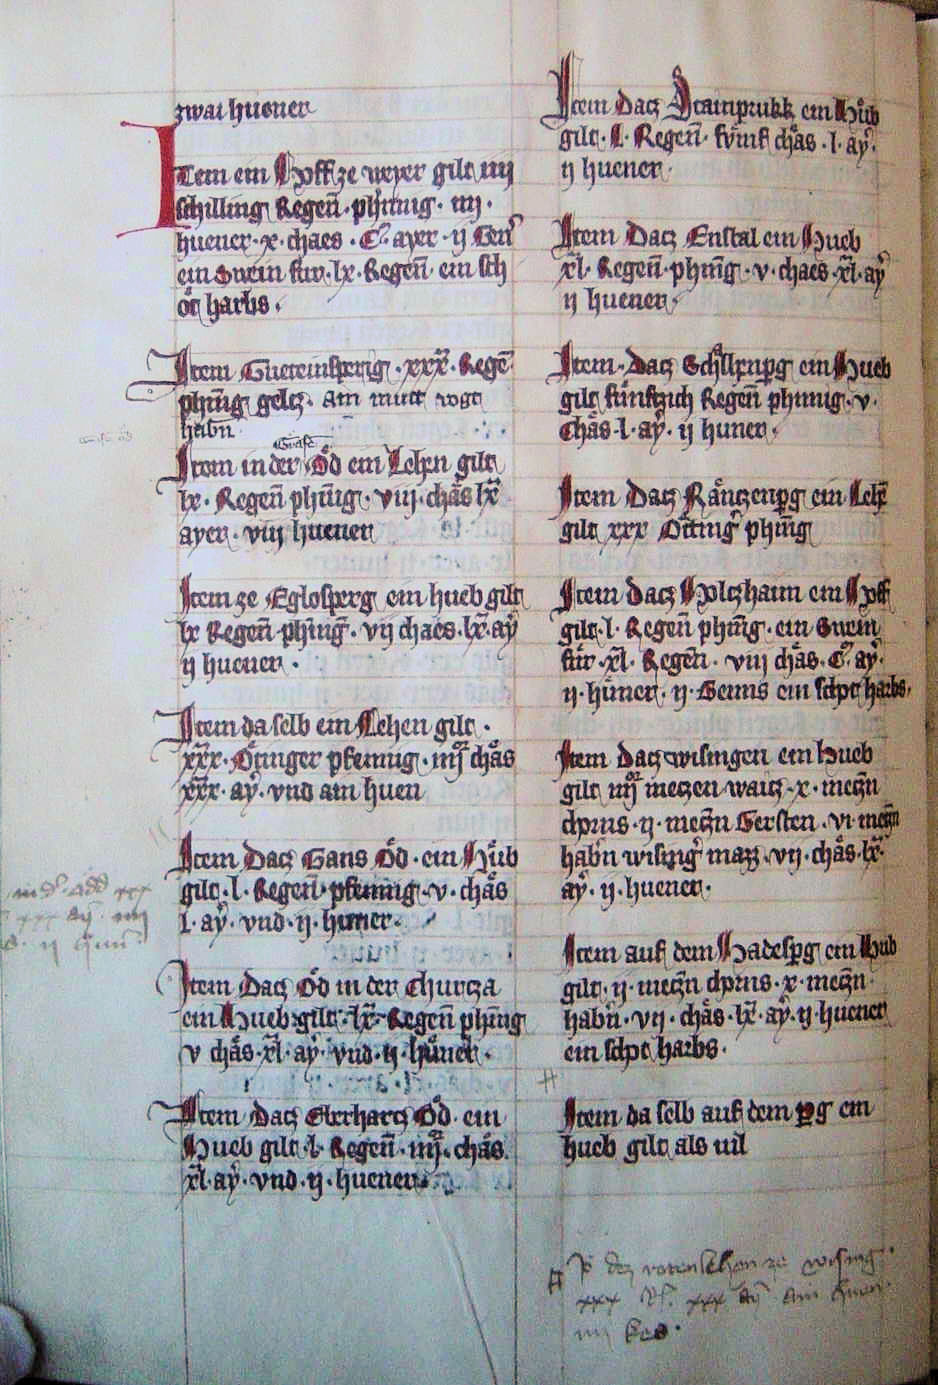 zwai huener
Item ein Hoff ze weyer gilt iiij
schilling Regen̄ · phening · iiij ·
huener · x · chaes · C · ayer · ij Gens
ein Swein fur · lx · Regen̄ · ein sch
ot harbs ·
Item Gueteinsperig · xxx · Regen̄
phing geltz · am mutt vogt
habn
Item in der Öd ein Lehen gilt
lx · Regen̄ phing · viij · chäs lx
ayer · viij huener
Item ze Eglosperg ein hueb gilt
lx Regen̄ phing · vij chaes · lx · aÿ
ij huener ·
Item da selb ein Lehen gilt ·
xxx · Ötinger pfennig · chäs
xxx · aÿ · vnd ain huen
Item Datz Gans Öd · ein Hůb
gilt · l · Regen̄ · pfening · v · chäs
l · aÿ · vnd · ij · huner ·
Item Datz Öd in der Churcza
ein Hueb gilt · lx · Regen̄ phing
v chäs · xl · aÿ · vnd · ij · hůner ·
Item Datz Eberhartz Öd · ein
Hueb gilt · l · Regen̄ · chäs
xl · aÿ · vnd · ij · huener
Item Datz Stainprukk ein Hůb
gilt · l · Regen̄ · fůnif chäs · l · aÿ ·
ij huener ·
Item Datz Enstal ein Hueb
xl · Regen̄ · phing · v · chaes · xl · aÿ
ij huener ·
Item · Datz ein Hueb
gilt fünftzich Regen̄ phinnig · v ·
Chäs · l · aÿ · ij huner ·
Item Datz Räntzenpg ein Lehn̄
gilt xxx Ötting phing
Item Datz Holtzhaim ein Hoff
gilt · l · Regen̄ phing · ein Swein
für · xl · Regen̄ · viij chäs · C · aÿ ·
ij · hůner · ij · Genns ein schot harbs ·
Item Datz wisingen ein Hueb
gilt metzen waitz · x · metzn
chorns · ij · metzn Gersten · vi · metzn
habn wising mazz · vij · chäs · lx ·
aÿ · ij · huener ·
Item auf dem Hadespg ein Hub
gilt · ij · metzn chorns · x · metzn ·
habn · vij · chäs · lx · aÿ · ij · huener
ein schot harbs ·
Item da selb auf dem pg ein
hueb gilt als uil
ze wising
xxx xxx aÿ ain huen
iiij kes ·